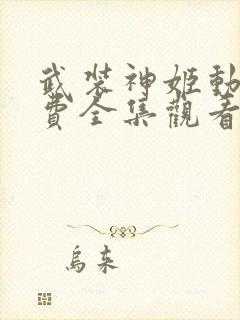 武装神姬動
費全集觀看
烏來